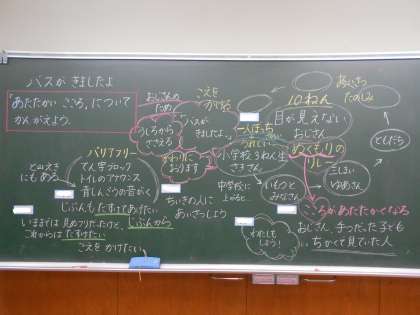 バスが きましたよ
「あたたかい こころ」について
かんがえよう。
おじさんの
ため
こえを
かける
「バスが
きましたよ。」
うしろから
ささえる
かわりに
おります
10ねん
目が見えない
おじさん
一人ぼっち
うれしい
小学校3ねん生
さきさん
ぬくもりの
リレー
ともだち
中学校に
上がると…
いもうと
みなさん
バリアフリー
てん字ブロック
トイレのアナウンス
青しんごうの音がく
じぶんもたすけてあげたい
にもある
いままでは 見るフリだったけど、じぶんから
これからは たすけたい
こえを かけたい
ちいきの人に
あいさつしよう
わたしも
しよう!
こころがあたたかくなる
おじさん、手つだった子ども
ちかくで見ていた人